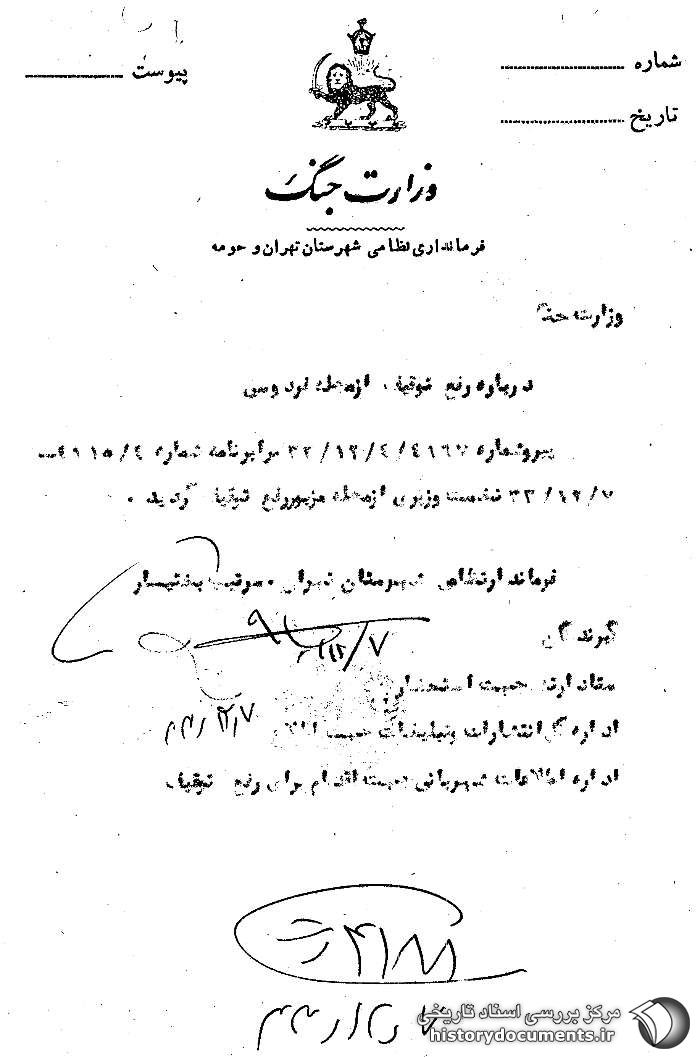 شماره
تاریخ
پیوست
وزارت جنگ
فرمانداری نظامی شهرستان تهران و حومه
وزارت جنگ
درباره رفع توقیف ازمجله فردوسی
پیروشماره ٤١٦٧/٤/١٢/٣٢ برابرنامه شماره ٤١١٥/٤ــ
٣٢/١٢/٧ نخست وزیری ازمجله مزبوررفع توقیف گردید ٠
فرماندارنظامی شهرستان تهران ٠ سرتیپ بختیار
١٢/٧
گیرندگان
ستاد ارتش جهت استحضار
اداره کل انتشارات وتبلیغات جهت اطلاع
اداره اطلاعات شهربانی جهت اقدام برای رفع توقیف
مرکز بررسی اسناد تاریخی
historydocuments.ir